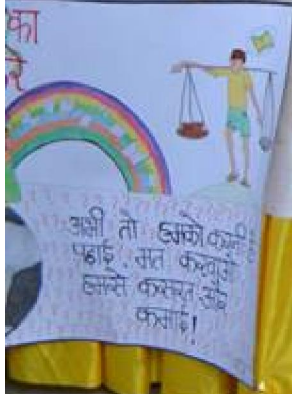 का
रे
अभी तो हमको करनी है
पढाई, मत करवाओ
हमसे कसरत और
कमाई!